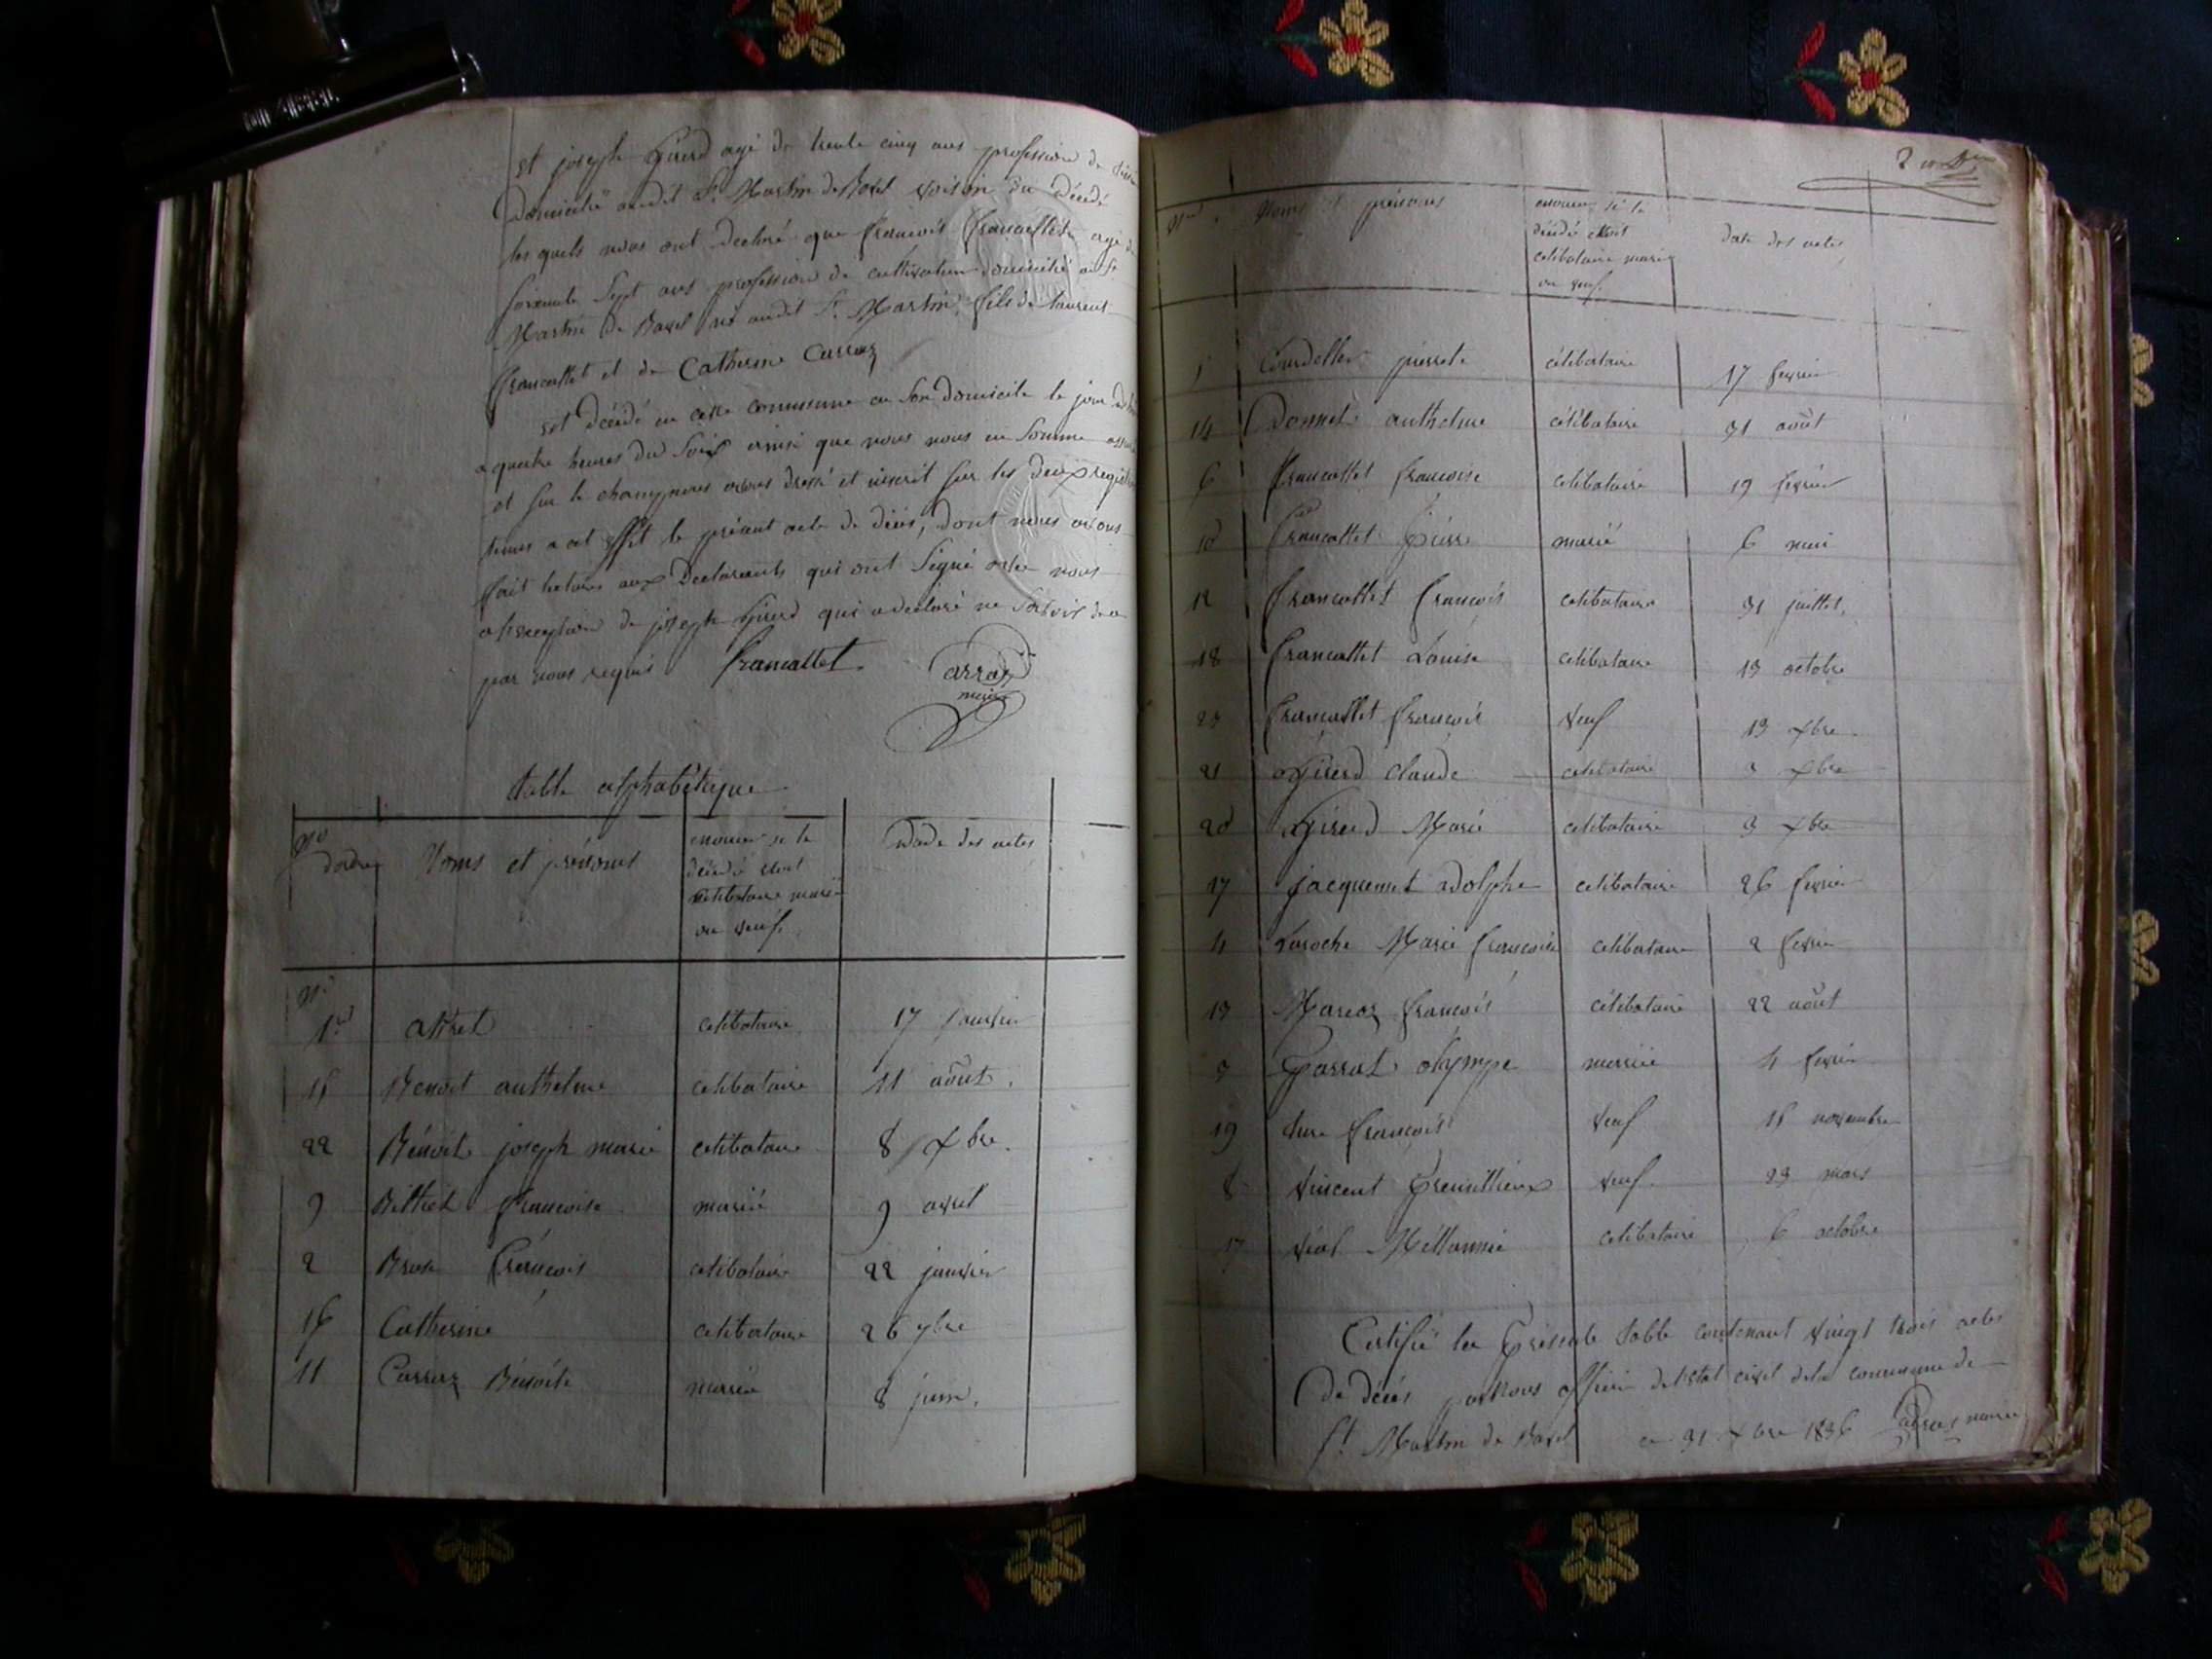 et joseph Girerd agé de trente cinq ans profession de
Domicilié audit St. Martin de Bavel voisin du Décédé
les quels nous ont declaré que francois francallet agé de
soixante Sept ans profession de cultivateur domicilié audt St
Martin de Bavel né audit St. Martin, fils de laurent
francallet et de Catherine Carraz
est Décédé en cette commune en Son Domicile le jour
a quatre heures du Soir ainsi que nous nous en Somme assuré
et Sur le champ nous avons dressé et inscrit Sur les deux registres
tenus a cet effet le présent acte de décès, dont nous avons
fait lecture aux Declarants qui ont Signé avec nous
a lexception de joseph Girerd qui a declaré ne Savoir de ce
par nous requis francallet Carraz
maire
table alphabétique
No
dordre Noms et prénoms enoncer si le
décédé etoit
celibataire marié
ou veuf. Date des actes
No
1er attret celibataire 17 janvier
Benoit anthelme celibataire 11 août.
22 Bénoit joseph marie celibataire 8 xbre.
9 Billiet francoise mariée 9 avril
2 Brun francois celibataire 22 janvier
16 Catherine celibataire 26 7bre
11 Carraz Bénoite mariée 8 juin.
Nos Noms et prénoms enoncer si le
décédé etoit
celibataire marié
ou veuf. Date des actes
Pierrete célibataire 17 fevrier
14 Donnet anthelme célibataire 31 août
6 francallet francoise celibataire 19 fevrier
10 francallet Pierre marié 6 mai
12 francallet francois celibataire 31 juillet.
18 francallet Louise celibataire 13 octobre
23 francallet francois veuf 13 xbre.
21 Girerd claude celibataire 3 xbre
20 Girerd Marie celibataire 3 xbre
jacquemet adolphe celibataire 26 fevrier
4 Laroche Marie francoise celibataire 2 fevrier
13 francois célibataire 22 août
5 Parrat olympe mariée 4 fevrier
19 francois veuf novembre
8 vincent veuf. 23 mars
17 vial Mellannie celibataire 6 octobre
Certifié la Présente table contenant vingt trois actes
De décès par nous officier de l'etat civil de la commune de
St. Martin de Bavel ce 31 xbre 1836 Carraz maire